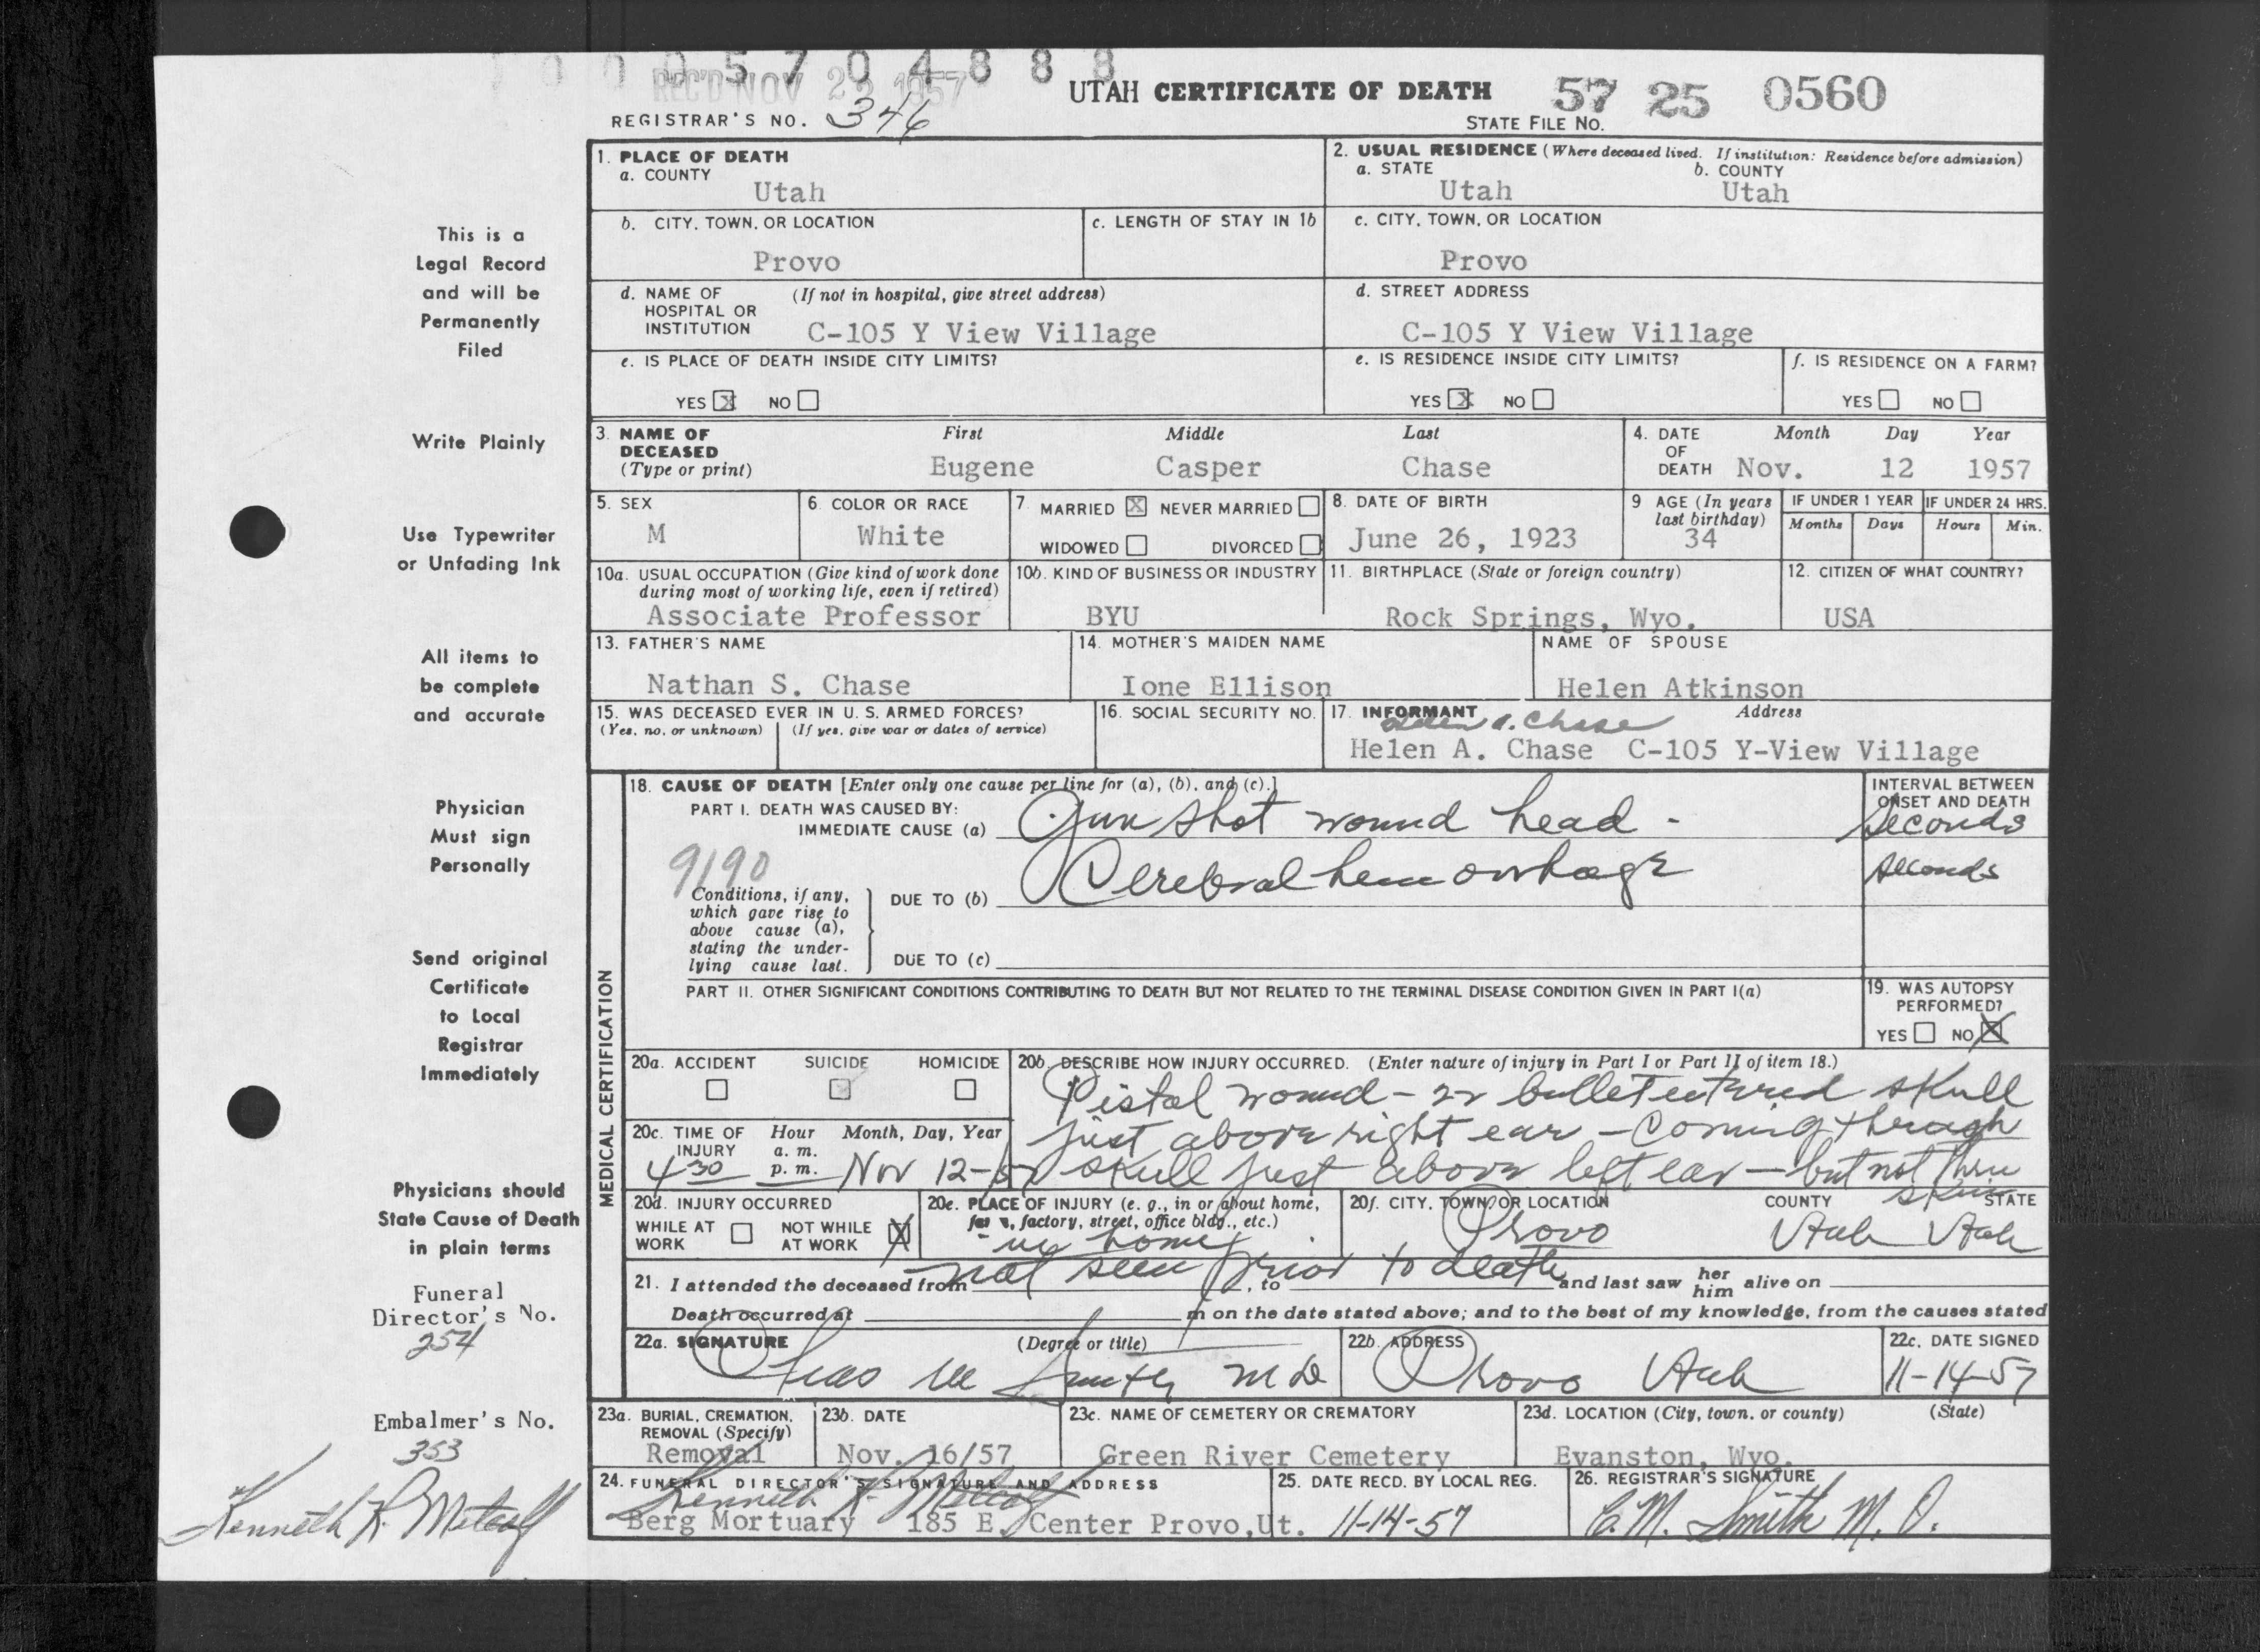 1 0 0 0 5 7 0 4 8 8 8
REC'D NOV 2 1957
UTAH CERTIFICATE OF DEATH 57 25 0560
REGISTRAR'S NO. 346 STATE FILE NO.
1. PLACE OF DEATH
a. COUNTY
Utah
2. USUAL RESIDENCE (Where deceased lived. If institution: Residence before admission)
a. STATE b. COUNTY
Utah Utah
b. CITY, TOWN, OR LOCATION
Provo
c. LENGTH OF STAY IN 1b
c. CITY, TOWN, OR LOCATION
Provo
d. NAME OF (If not in hospital, give street address)
HOSPITAL OR
INSTITUTION C-105 Y View Village
d. STREET ADDRESS
C-105 Y View Village
e. IS PLACE OF DEATH INSIDE CITY LIMITS?
YES X NO
e. IS RESIDENCE INSIDE CITY LIMITS?
YES X NO
f. IS RESIDENCE ON A FARM?
YES NO
3. NAME OF First Middle Last
DECEASED
(Type or print) Eugene Casper Chase
4. DATE Month Day Year
OF
DEATH Nov. 12 1957
5. SEX
M
6. COLOR OR RACE
White
7. MARRIED X NEVER MARRIED
WIDOWED DIVORCED
8. DATE OF BIRTH
June 26, 1923
9 AGE (In years
last birthday)
34
IF UNDER 1 YEAR
Months Days
IF UNDER 24 HRS.
Hours Min.
10a. USUAL OCCUPATION (Give kind of work done
during most of working life, even if retired)
Associate Professor
10b. KIND OF BUSINESS OR INDUSTRY
BYU
11. BIRTHPLACE (State or foreign country)
Rock Springs, Wyo.
12. CITIZEN OF WHAT COUNTRY?
USA
13. FATHER'S NAME
Nathan S. Chase
14. MOTHER'S MAIDEN NAME
Ione Ellison
NAME OF SPOUSE
Helen Atkinson
15. WAS DECEASED EVER IN U. S. ARMED FORCES?
(Yes, no, or unknown) (If yes, give war or dates of service)
16. SOCIAL SECURITY NO.
17. INFORMANT Address
Helen A. Chase
Helen A. Chase C-105 Y-View Village
MEDICAL CERTIFICATION
18. CAUSE OF DEATH [Enter only one cause per line for (a), (b), and (c).]
PART I. DEATH WAS CAUSED BY:
IMMEDIATE CAUSE (a) Gun shot wound head -
INTERVAL BETWEEN
ONSET AND DEATH
Seconds
9190
Conditions, if any,
which gave rise to
above cause (a),
stating the under-
lying cause last.
DUE TO (b) Cerebral hemorrhage
seconds
DUE TO (c)
PART II. OTHER SIGNIFICANT CONDITIONS CONTRIBUTING TO DEATH BUT NOT RELATED TO THE TERMINAL DISEASE CONDITION GIVEN IN PART I(a)
19. WAS AUTOPSY
PERFORMED?
YES NO X
20a. ACCIDENT SUICIDE HOMICIDE
20b. DESCRIBE HOW INJURY OCCURRED. (Enter nature of injury in Part I or Part II of item 18.)
Pistol wound - 22 bullet entered skull
just above right ear - coming through
skull just above left ear - but not thru
skin
20c. TIME OF Hour Month, Day, Year
INJURY a. m.
4 30 p. m. Nov 12-57
20d. INJURY OCCURRED
WHILE AT NOT WHILE X
WORK AT WORK
20e. PLACE OF INJURY (e. g., in or about home,
farm, factory, street, office bldg., etc.)
- in home
20f. CITY, TOWN, OR LOCATION COUNTY STATE
Provo Utah Utah
21. I attended the deceased from not seen prior to death, to and last saw her him alive on
Death occurred at m on the date stated above; and to the best of my knowledge, from the causes stated
22a. SIGNATURE (Degree or title)
M D
22b. ADDRESS
Provo Utah
22c. DATE SIGNED
11-14-57
23a. BURIAL, CREMATION,
REMOVAL (Specify)
Removal
23b. DATE
Nov. 16/57
23c. NAME OF CEMETERY OR CREMATORY
Green River Cemetery
23d. LOCATION (City, town, or county) (State)
Evanston, Wyo.
24. FUNERAL DIRECTOR'S SIGNATURE AND ADDRESS
Kenneth R. Metcalf
Berg Mortuary 185 E. Center Provo,Ut.
25. DATE RECD. BY LOCAL REG.
11-14-57
26. REGISTRAR'S SIGNATURE
C. M. Smith M. D.
This is a
Legal Record
and will be
Permanently
Filed
Write Plainly
Use Typewriter
or Unfading Ink
All items to
be complete
and accurate
Physician
Must sign
Personally
Send original
Certificate
to Local
Registrar
Immediately
Physicians should
State Cause of Death
in plain terms
Funeral
Director's No.
254
Embalmer's No.
353
Kenneth R. Metcalf